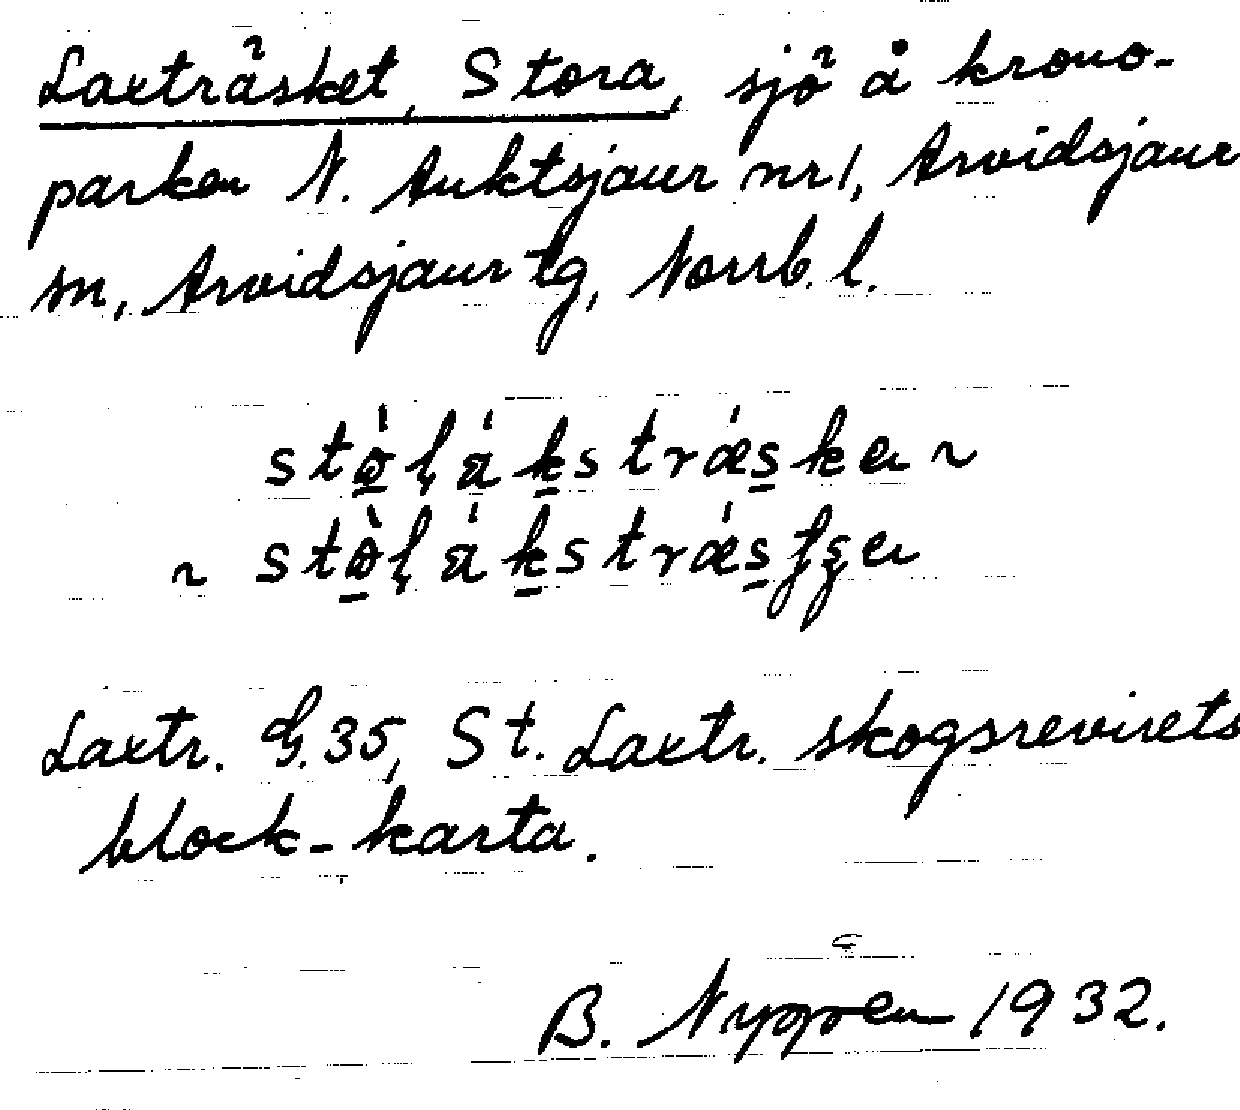 Laxträsket, Stora, sjö å krono-
parken N. Auktsjaur nr 1, Arvidsjaur
sn, Arvidsjaur tg, Norrb. l.
Laxtr. G. 35, St. Laxtr. skogsrevirets
block-karta.
B. Nyppen 1932.